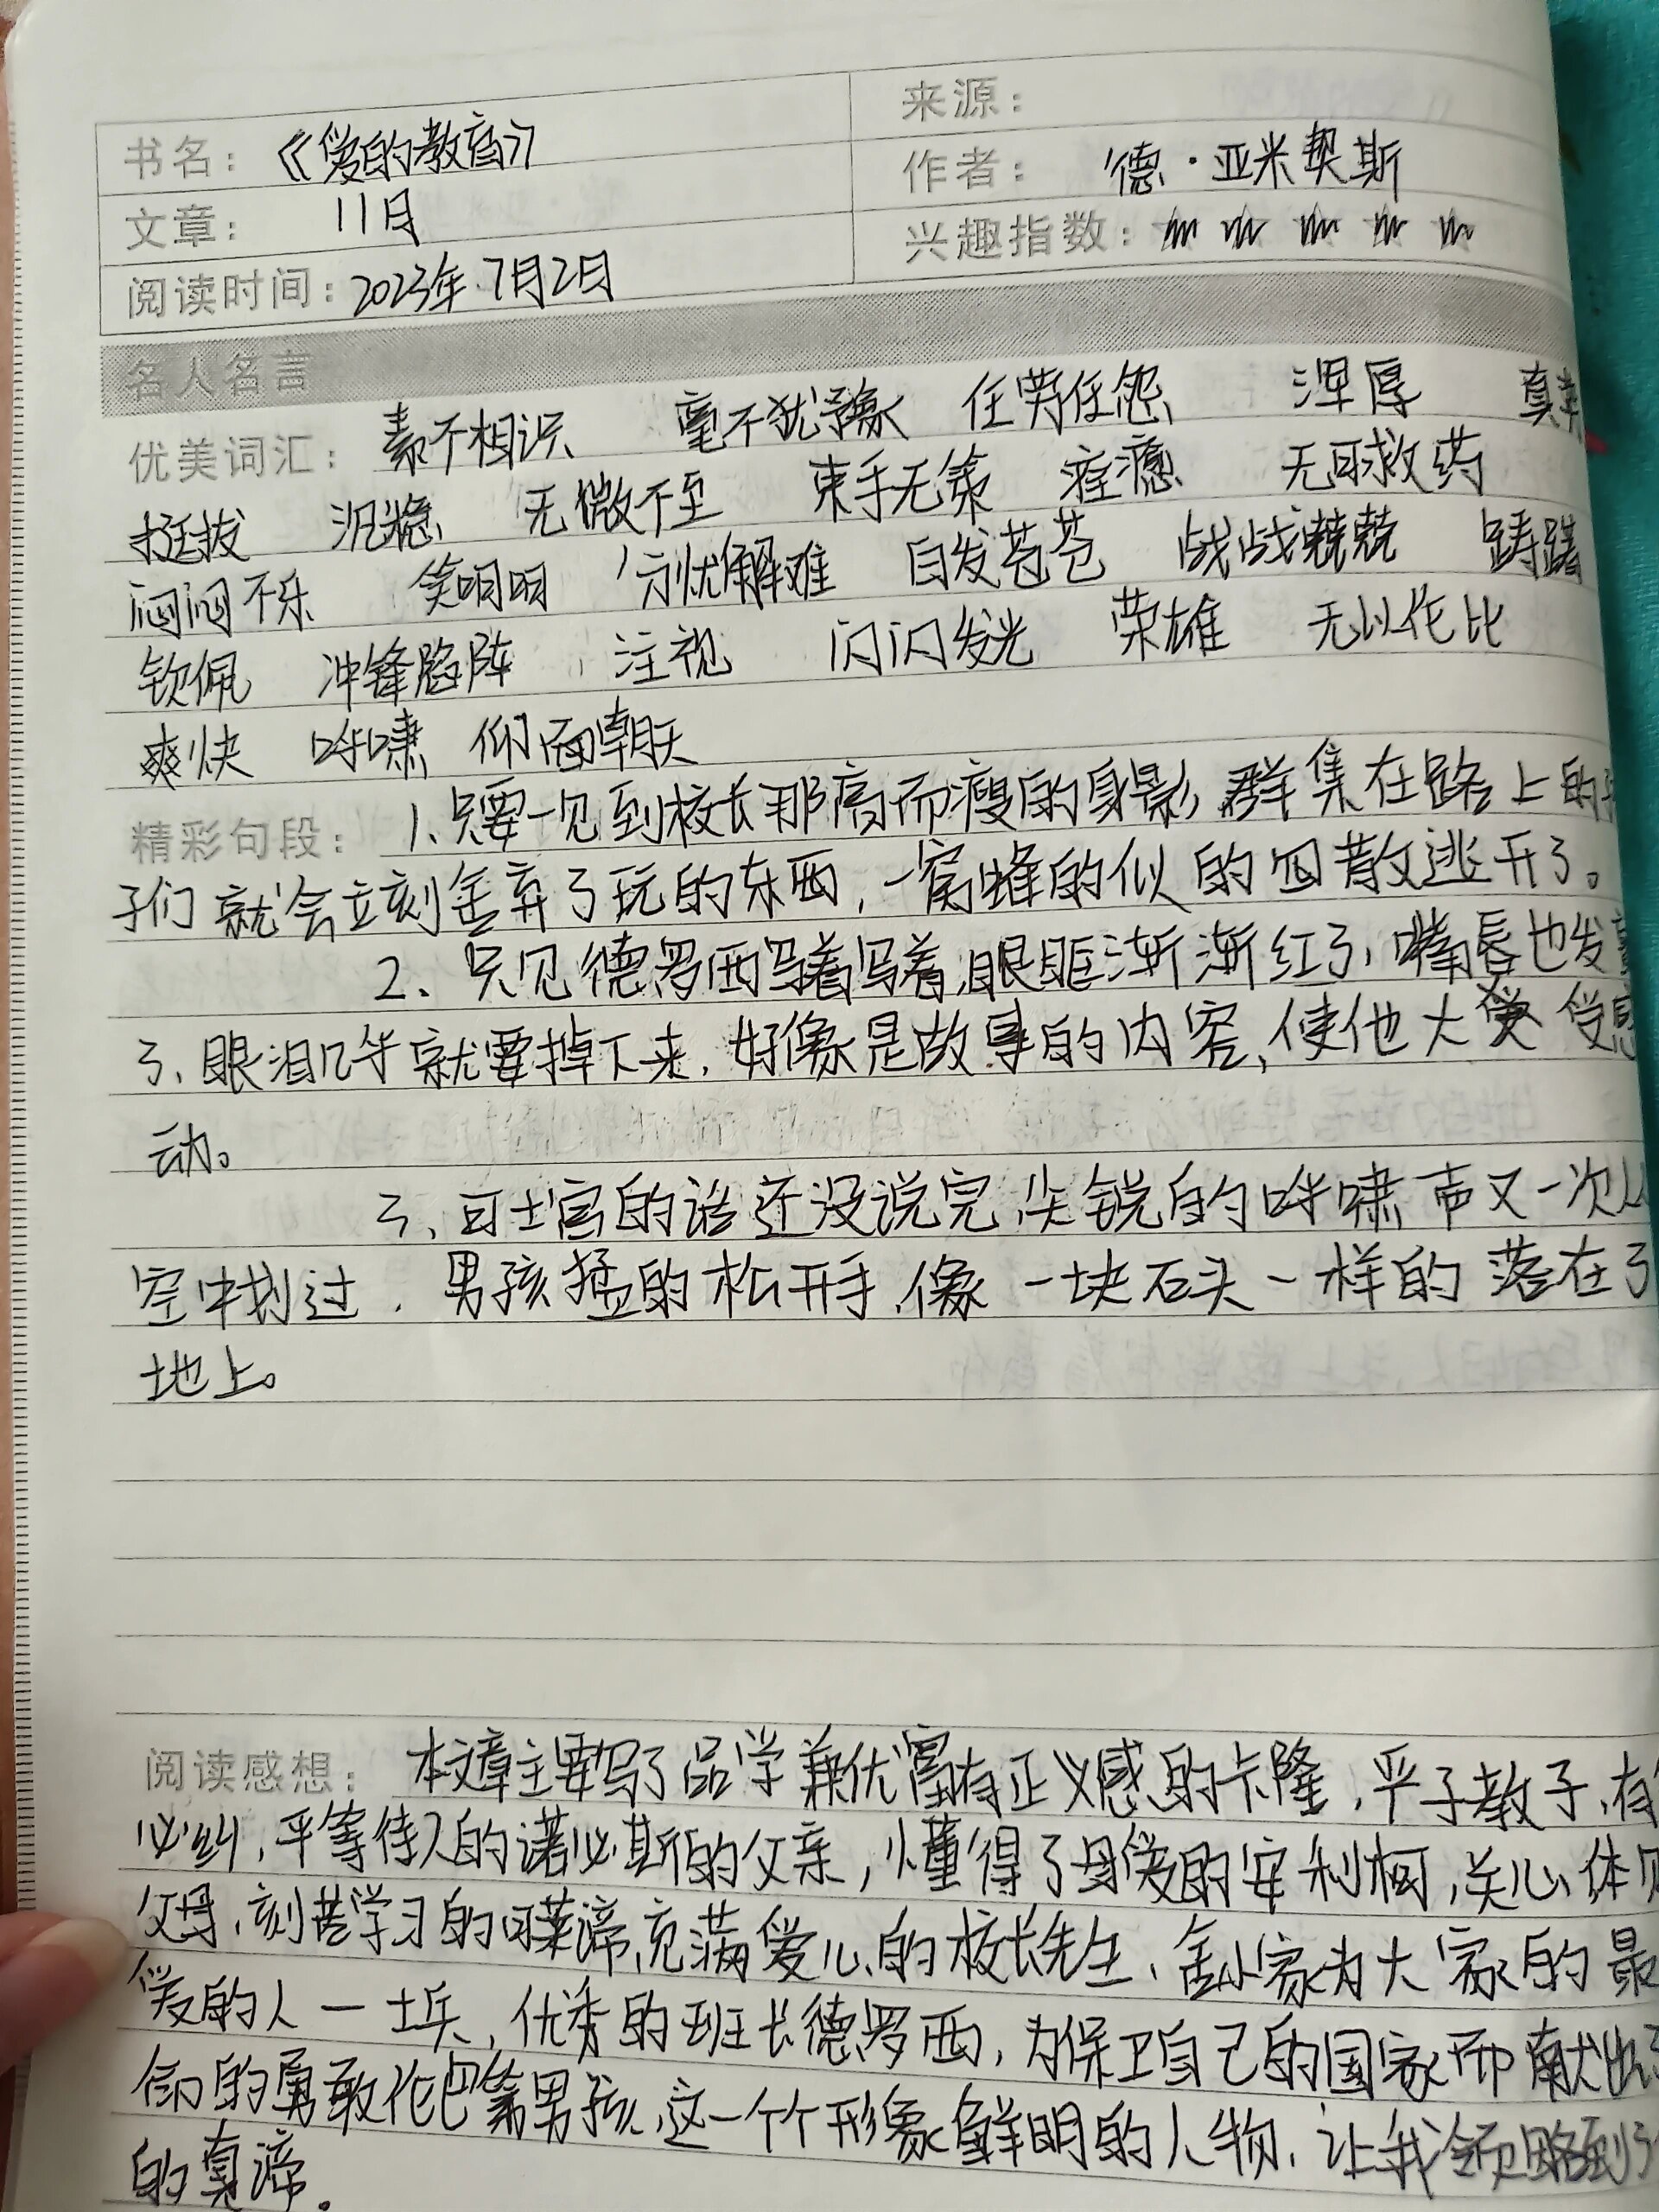 来源：
书名：《爱的教育》
作者：德·亚米契斯
文章：11月
兴趣指数：
阅读时间：2023年7月2日
名人名言
优美词汇：素不相识 毫不犹豫 任劳任怨 浑厚 真
挺拔 沉稳 无微不至 束手无策 无可救药
闷闷不乐 笑呵呵 分忧解难 白发苍苍 战战兢兢 踌躇
钦佩 冲锋陷阵 注视 闪闪发光 英雄 无以伦比
爽快 呼啸 仰面朝天
精彩句段：1、只要一见到校长那高而瘦的身影，群集在路上的
子们就会立刻丢弃了玩的东西，一窝蜂的似的四散逃开了。
2、只见德罗西写着写着，眼眶渐渐红了，嘴唇也发
了，眼泪几乎就要掉下来，好像是故事的内容，使他大受感
动。
3、可士官的话还没说完，尖锐的呼啸声又一次从
空中划过，男孩猛的松开手，像一块石头一样的落在了
地上。
阅读感想：本文章主要写了品学兼优富有正义感的卡隆，严于教子，有
必纠，平等待人的诺必斯的父亲，懂得了母爱的安利柯，关心体贴
父母，刻苦学习的 充满爱心的校长先生，舍小家为大家的最
爱的人一士兵，优秀的班长德罗西，为保卫自己的国家而献出
命的勇敢伦巴第男孩，这一个个形象鲜明的人物，让我领略到了
的真谛。